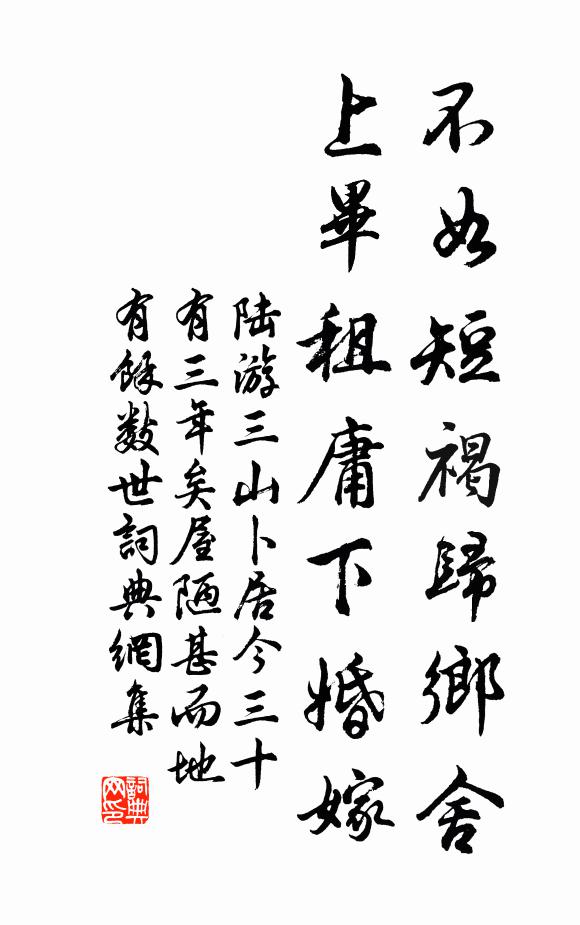 不如短褐歸鄉舍
上畢租庸下婚嫁
陆游三山卜居今三十
有三年矣屋陋甚而地
有餘數世詞典網集
詞典
网印